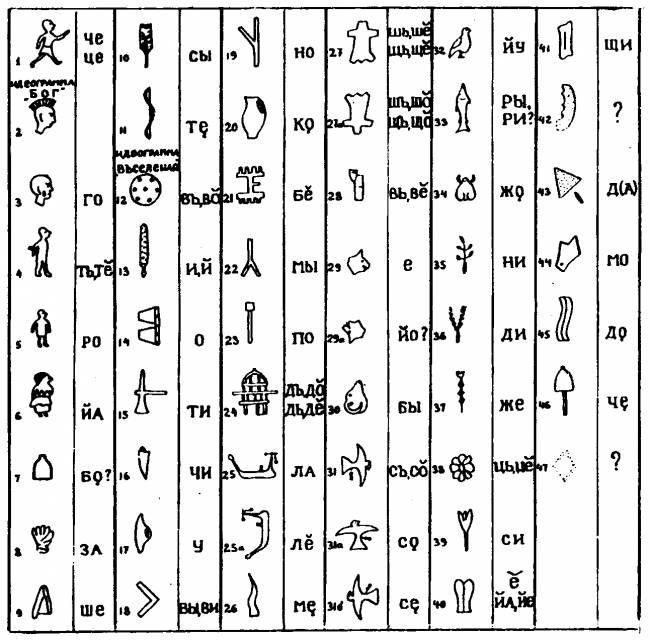 1 ЧЕ ЦЕ 10 СЫ 19 НО 27 ШЬ,ШӖ ЩЬ,ЩӖ 32 ЙУ 41 ЩИ
ИДЕОГРАММА "БОГ"
2 11 ТЕ̨ 20 КО̨ 27а ШЪ,ШО̆ ЩЪ,ЩО̆ 33 РЫ, РИ? 42 ?
ИДЕОГРАММА ВЪСЕЛЕНАЙ
3 ГО 12 ВЪ,ВО̆ 21 БӖ 28 ВЬ,ВӖ 34 ЖО̨ 43 Д(А)
4 ТЬ,ТӖ 13 И,Й 22 МЫ 29 Е 35 НИ 44 МО
5 РО 14 О 23 ПО 29а ЙО? 36 ДИ 45 ДО̨
6 ЙА 15 ТИ 24 ДЪ,ДО̆ ДЬ,ДӖ 30 БЫ 37 ЖЕ 46 ЧЕ̨
7 БО̨? 16 ЧИ 25 ЛА 31 СЪ,СО̆ 38 ЦЬ,ЦӖ 47 ?
8 ЗА 17 У 25а ЛӖ 31а СО̨ 39 СИ
9 ШЕ 18 ВЫ,ВИ 26 МЕ̨ 31б СЕ̨ 40 Ӗ ЙА,ЙЕ